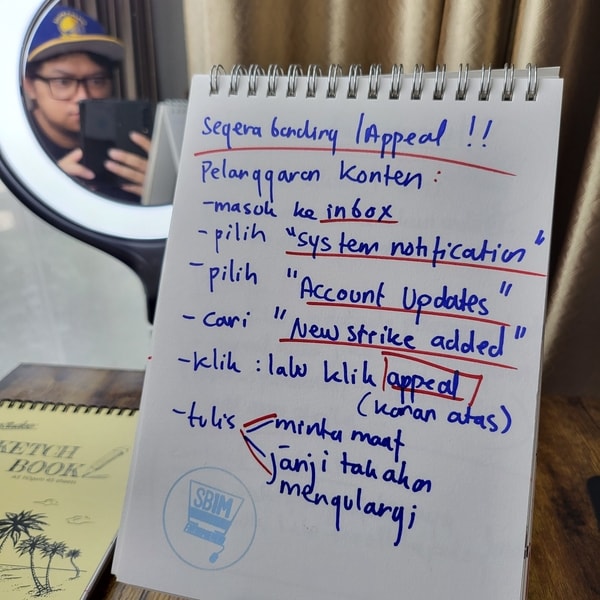 Segera banding / Appeal !!
Pelanggaran Konten :
- masuk ke inbox
- pilih "system notification"
- pilih "Account Updates"
- cari "New strike added"
- klik : lalu klik appeal
(kanan atas)
- tulis minta maaf
janji tak akan
mengulangi
SBIM
SKETCH
BOOK